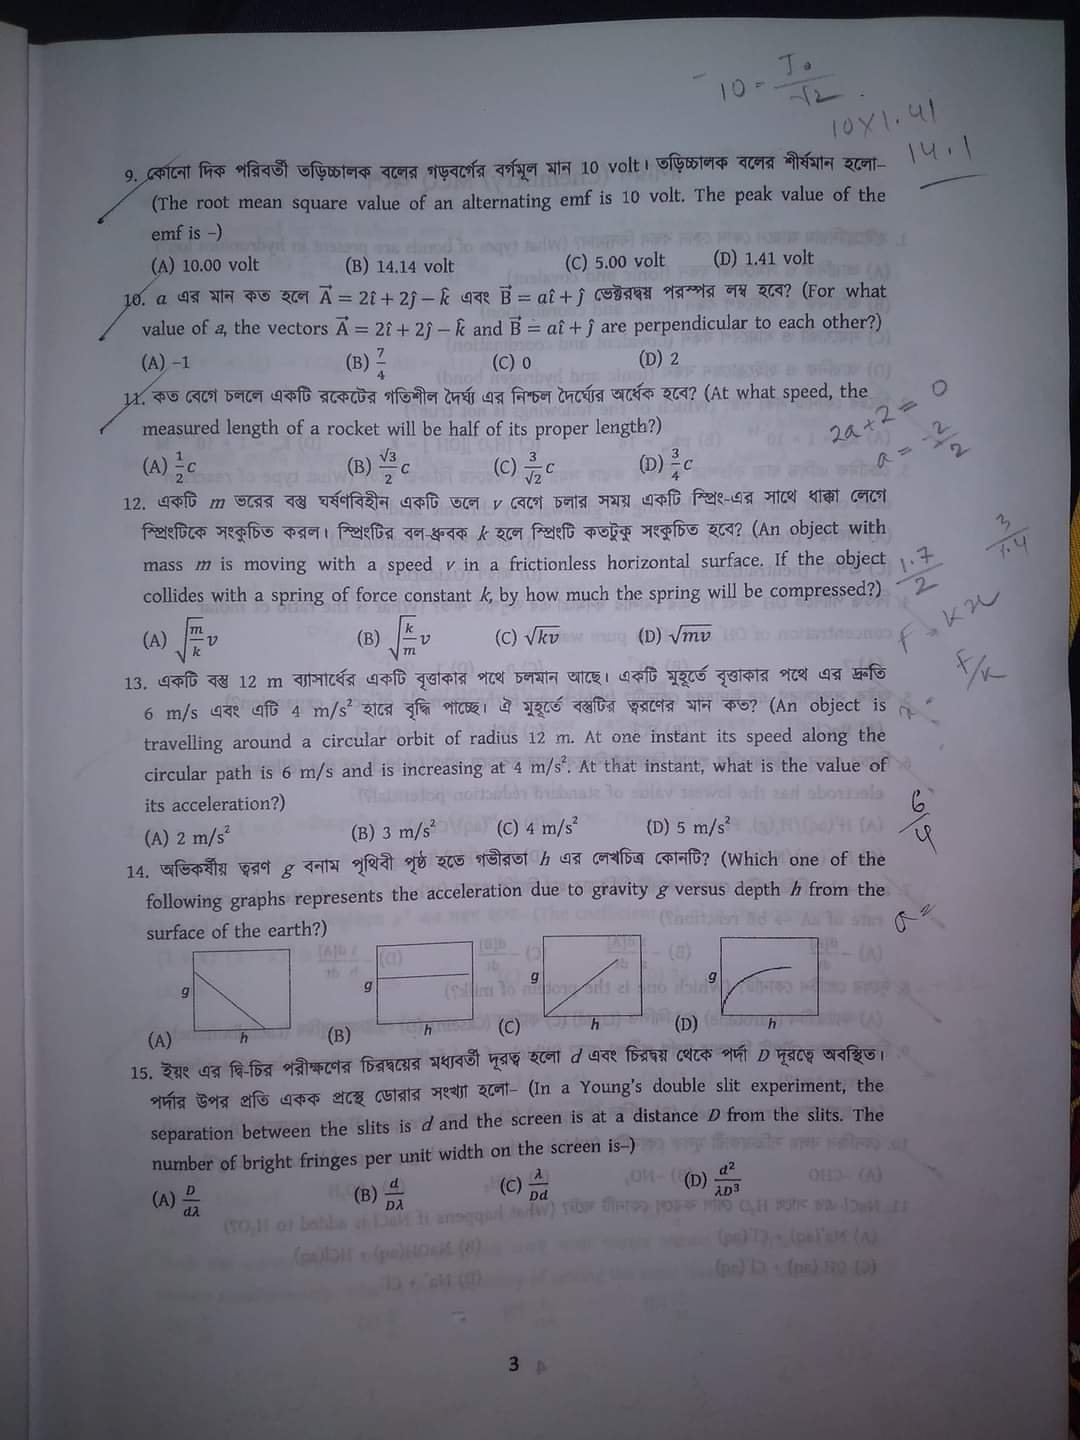 10 = I₀/√2
10×1.41
14.1
9. কোনো দিক পরিবর্তী তড়িচ্চালক বলের গড়বর্গের বর্গমূল মান 10 volt। তড়িচ্চালক বলের শীর্ষমান হলো–
(The root mean square value of an alternating emf is 10 volt. The peak value of the
emf is –)
(A) 10.00 volt (B) 14.14 volt (C) 5.00 volt (D) 1.41 volt
10. a এর মান কত হলে A⃗ = 2î + 2ĵ – k̂ এবং B⃗ = aî + ĵ ভেক্টরদ্বয় পরস্পর লম্ব হবে? (For what
value of a, the vectors A⃗ = 2î + 2ĵ – k̂ and B⃗ = aî + ĵ are perpendicular to each other?)
(A) –1 (B) 7/4 (C) 0 (D) 2
11. কত বেগে চললে একটি রকেটের গতিশীল দৈর্ঘ্য এর নিশ্চল দৈর্ঘ্যের অর্ধেক হবে? (At what speed, the
measured length of a rocket will be half of its proper length?)
2a+2 = 0
a = -2/2
(A) 1/2 c (B) √3/2 c (C) 3/√2 c (D) 3/4 c
12. একটি m ভরের বস্তু ঘর্ষণবিহীন একটি তলে v বেগে চলার সময় একটি স্প্রিং-এর সাথে ধাক্কা লেগে
স্প্রিংটিকে সংকুচিত করল। স্প্রিংটির বল-ধ্রুবক k হলে স্প্রিংটি কতটুকু সংকুচিত হবে? (An object with
3/1.4
mass m is moving with a speed v in a frictionless horizontal surface. If the object
1.7/2
collides with a spring of force constant k, by how much the spring will be compressed?)
F = kx
(A) √(m/k) v (B) √(k/m) v (C) √kv (D) √mv
F/k
13. একটি বস্তু 12 m ব্যাসার্ধের একটি বৃত্তাকার পথে চলমান আছে। একটি মুহূর্তে বৃত্তাকার পথে এর দ্রুতি
6 m/s এবং এটি 4 m/s² হারে বৃদ্ধি পাচ্ছে। ঐ মুহূর্তে বস্তুটির ত্বরণের মান কত? (An object is
travelling around a circular orbit of radius 12 m. At one instant its speed along the
circular path is 6 m/s and is increasing at 4 m/s². At that instant, what is the value of
its acceleration?)
6/4
(A) 2 m/s² (B) 3 m/s² (C) 4 m/s² (D) 5 m/s²
14. অভিকর্ষীয় ত্বরণ g বনাম পৃথিবী পৃষ্ঠ হতে গভীরতা h এর লেখচিত্র কোনটি? (Which one of the
following graphs represents the acceleration due to gravity g versus depth h from the
surface of the earth?)
(A) g h (B) g h (C) g h (D) g h
15. ইয়ং এর দ্বি-চির পরীক্ষণের চিরদ্বয়ের মধ্যবর্তী দূরত্ব হলো d এবং চিরদ্বয় থেকে পর্দা D দূরত্বে অবস্থিত।
পর্দার উপর প্রতি একক প্রস্থে ডোরার সংখ্যা হলো– (In a Young's double slit experiment, the
separation between the slits is d and the screen is at a distance D from the slits. The
number of bright fringes per unit width on the screen is–)
(A) D/dλ (B) d/Dλ (C) λ/Dd (D) d²/λD³
3